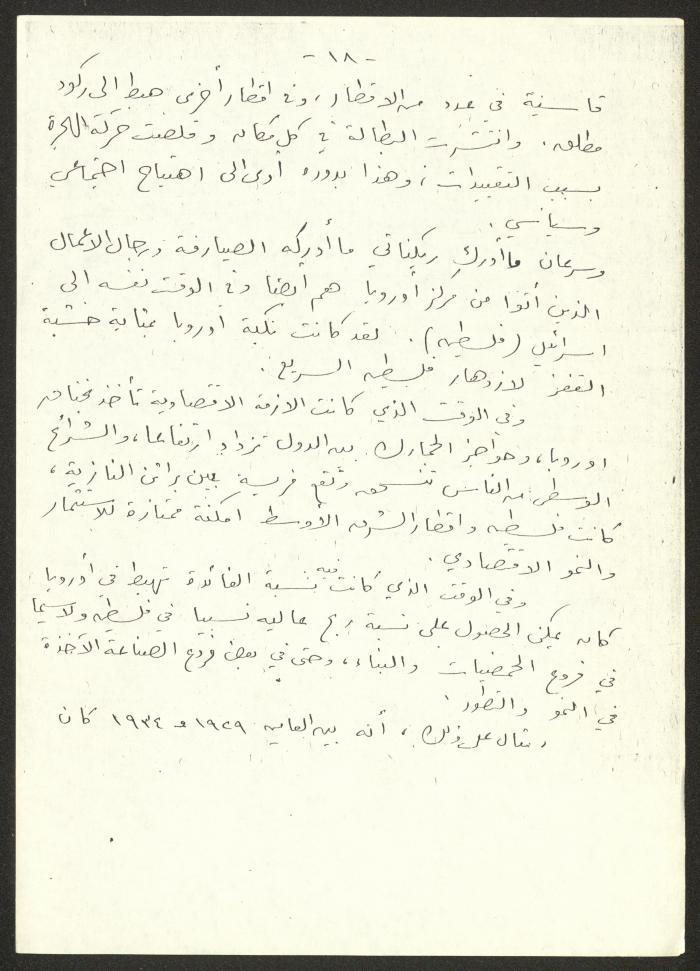 - ١٨ -
قاسية في عدد من الاقطار، وفي اقطار أخرى هبط الى ركود
مطلق. وانتشرت البطالة في كل مكان وقلصت حركة الهجرة
بسبب التقييدات، وهذا بدوره أدى الى اهتياج اجتماعي
وسياسي.
وسرعان ما أدرك ريكناتي ما أدركه الصيارفة ورجال الاعمال
الذين أتوا من مركز أوروبا هم أيضا وفي الوقت نفسه الى
اسرائيل (فلسطين). لقد كانت نكبة أوروبا بمثابة خشبة
القفز لازدهار فلسطين السريع.
وفي الوقت الذي كانت الازمة الاقتصادية تأخذ بخناق
اوروبا، وحواجز الجمارك بين الدول تزداد ارتفاعا، والشرائح
الوسطى من الناس تنسحق وتقع فريسة بين براثن النازية،
كانت فلسطين واقطار الشرق الأوسط امكنة ممتازة للاستثمار
والنمو الاقتصادي.
وفي الوقت الذي كانت فيه نسبة الفائدة تهبط في أوروبا
كان يمكن الحصول على نسبة ربح عاليه نسبيا في فلسطين ولاسيما
في فروع الحمضيات والبناء، وحتى في بعض فروع الصناعة الآخذة
في النمو والتطور.
مثال على ذلك، أنه بين العامين ١٩٢٩ و ١٩٣٤ كان